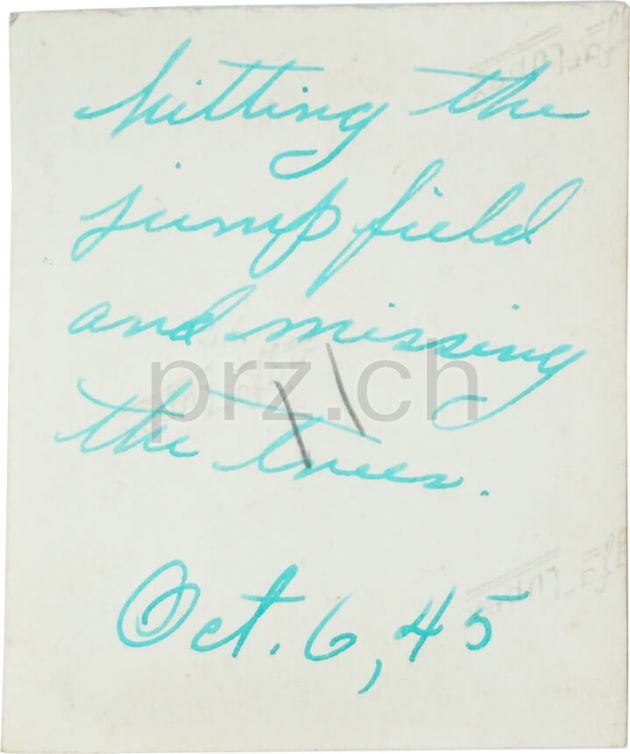 hitting the
jump field
and missing
the trees.
Oct. 6, 45
prz.ch